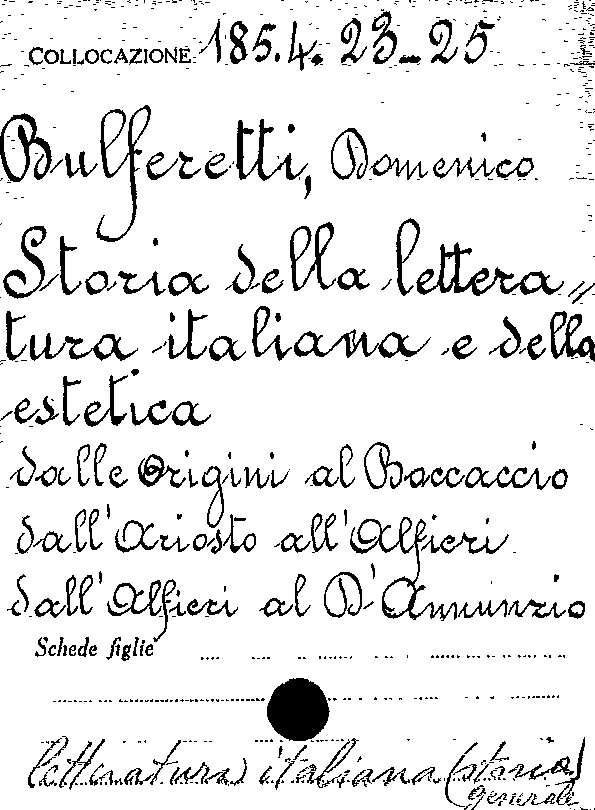 COLLOCAZIONE 185.4. 23-25
Bulferetti, Domenico
Storia della lettera„
tura italiana e della
estetica
dalle Origini al Boccaccio
dall'Ariosto all'Alfieri
dall'Alfieri al D'Annunzio
Schede figlie
letteratura italiana (storia)
generale